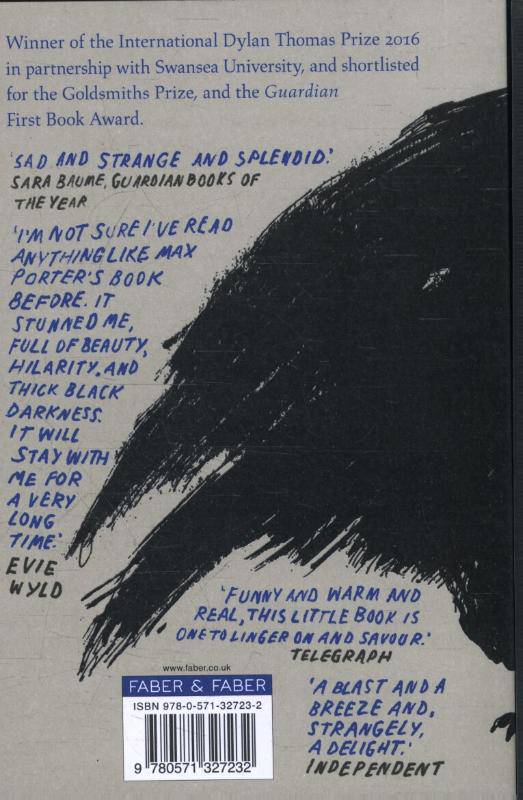 Winner of the International Dylan Thomas Prize 2016
in partnership with Swansea University, and shortlisted
for the Goldsmiths Prize, and the Guardian
First Book Award.
'SAD AND STRANGE AND SPLENDID.'
SARA BAUME, GUARDIAN BOOKS OF
THE YEAR
'I'M NOT SURE I'VE READ
ANYTHING LIKE MAX
PORTER'S BOOK
BEFORE. IT
STUNNED ME,
FULL OF BEAUTY,
HILARITY. AND
THICK BLACK
DARKNESS.
IT WILL
STAY WITH
ME FOR
A VERY
LONG
TIME.'
EVIE
WYLD
'FUNNY AND WARM AND
REAL, THIS LITTLE BOOK IS
ONE TO LINGER ON AND SAVOUR.'
TELEGRAPH
'A BLAST AND A
BREEZE AND,
STRANGELY,
A DELIGHT.'
INDEPENDENT
www.faber.co.uk
FABER & FABER
ISBN 978-0-571-32723-2
9 780571 327232